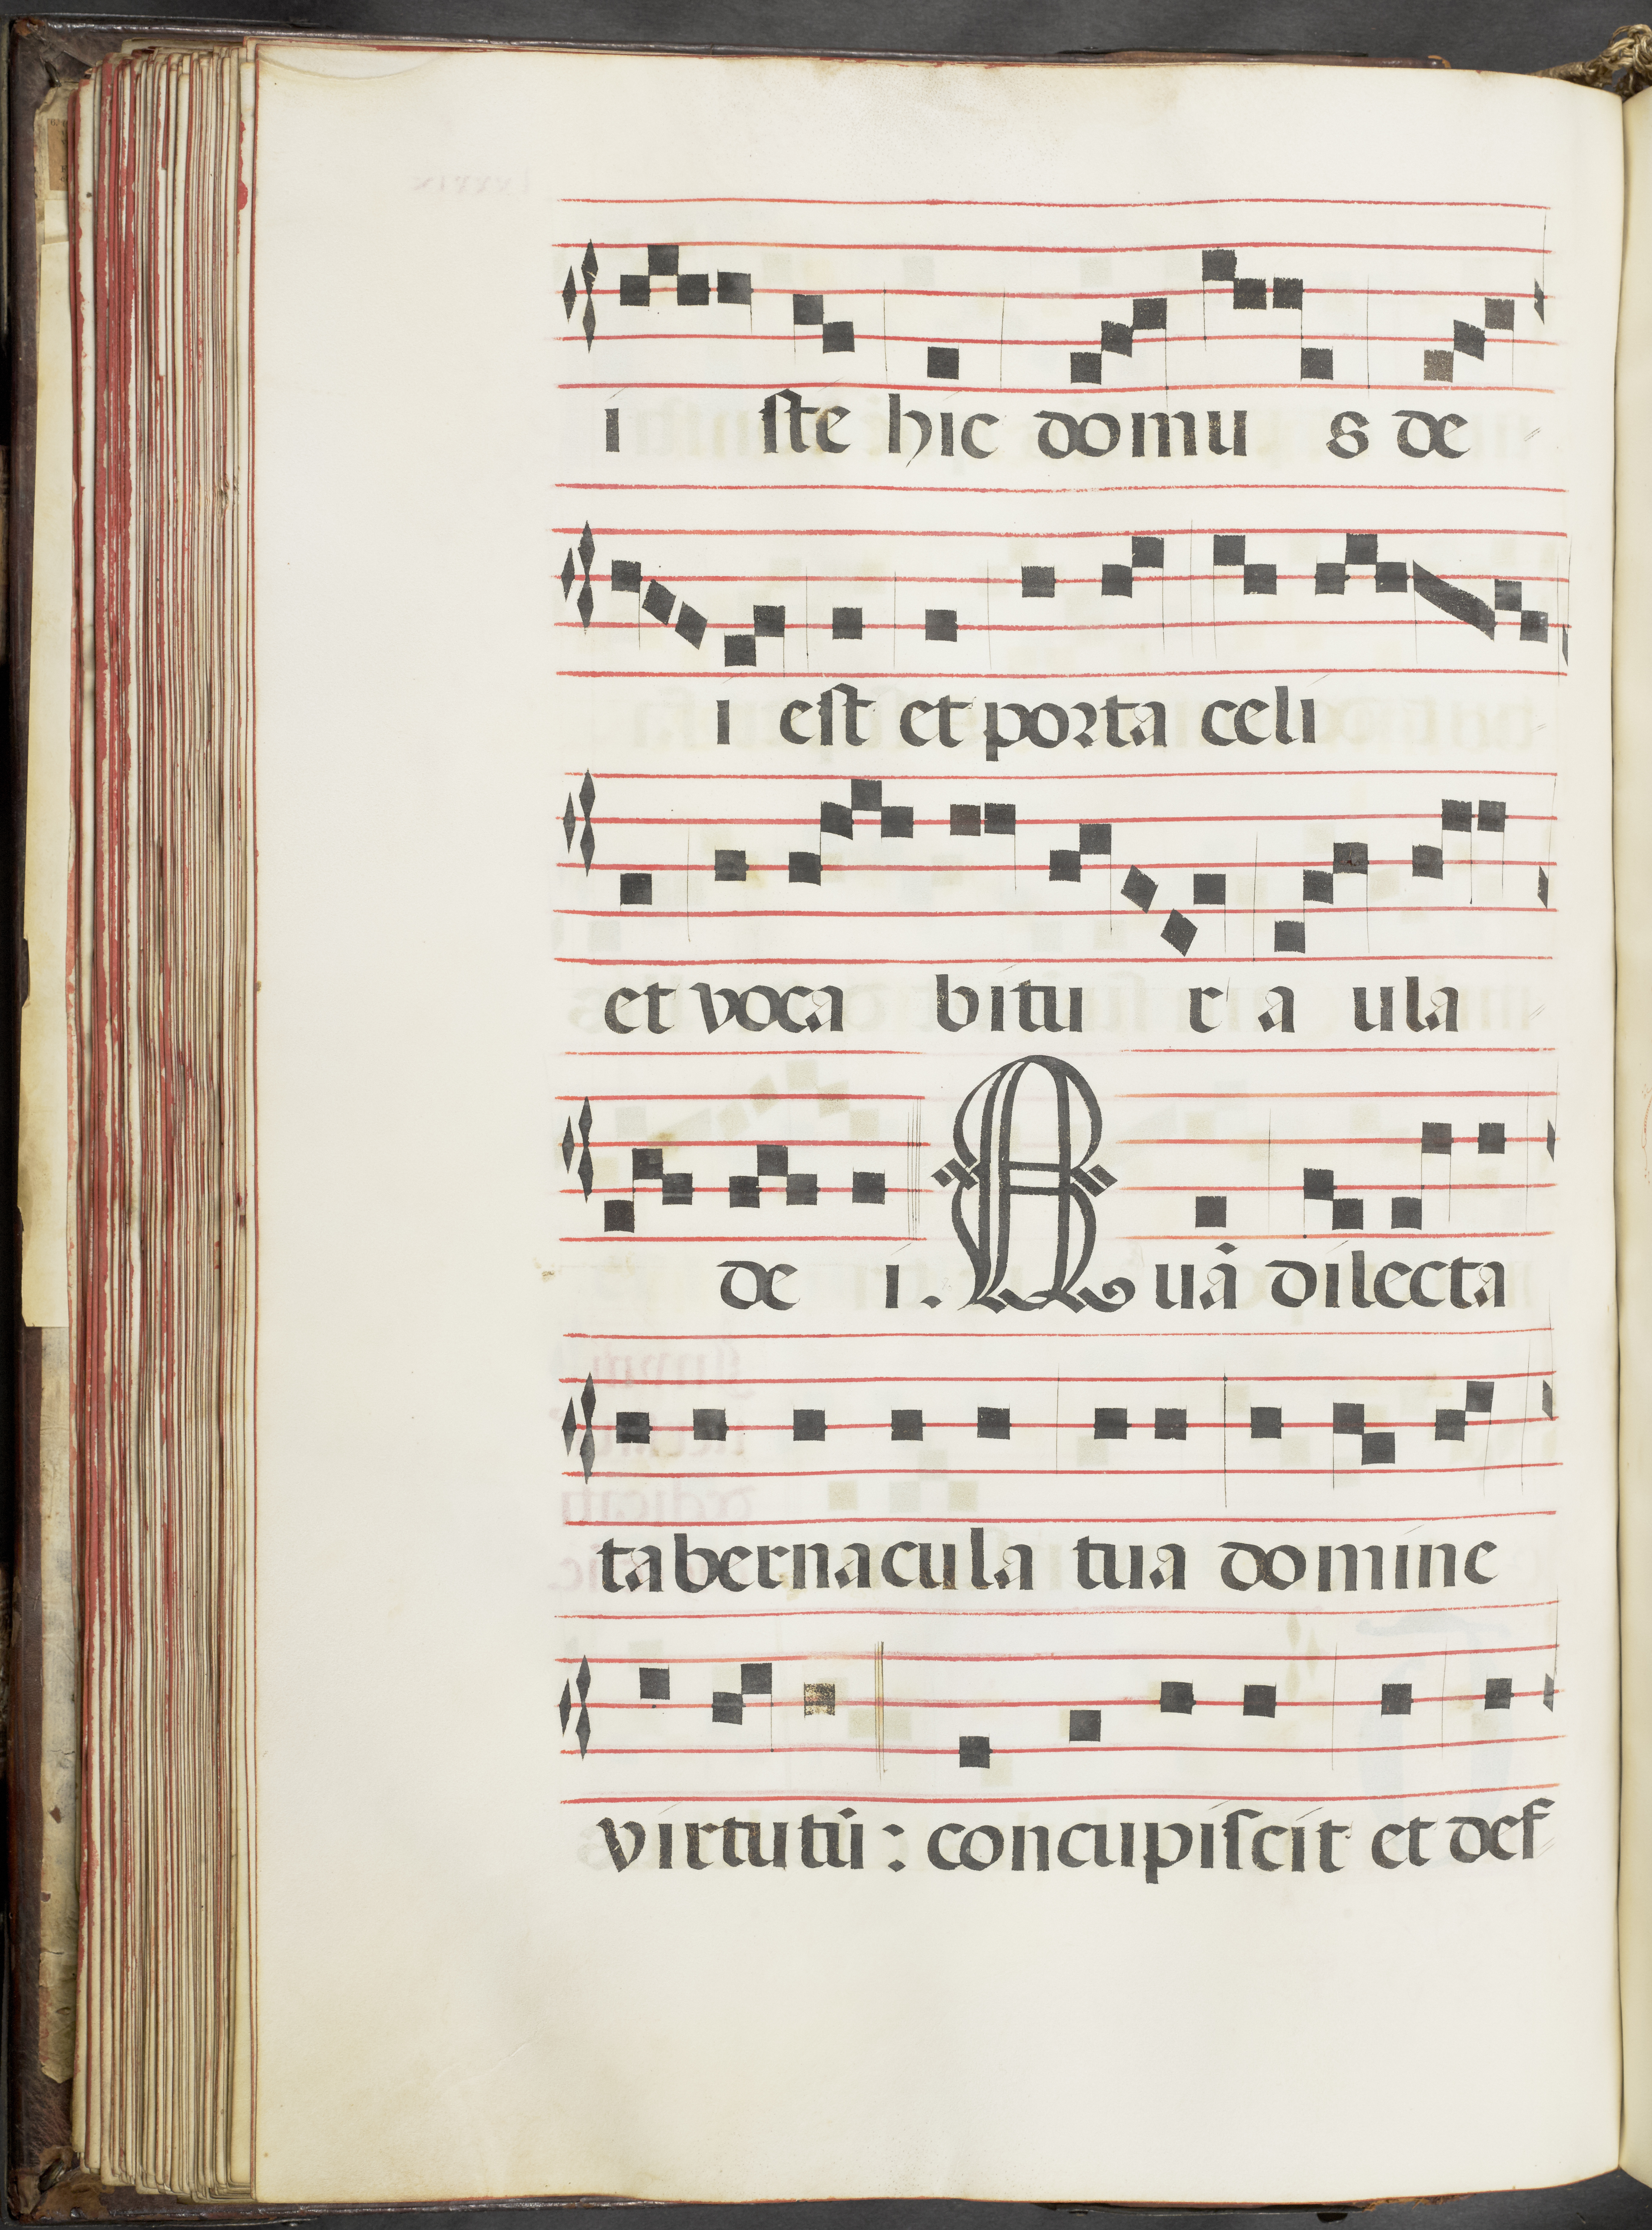 i ſte hic domu s de
i eſt et porta celi
et voca bitu r a ula
de i. Quā dilecta
tabernacula tua domine
virtutū : concupiſcit et def